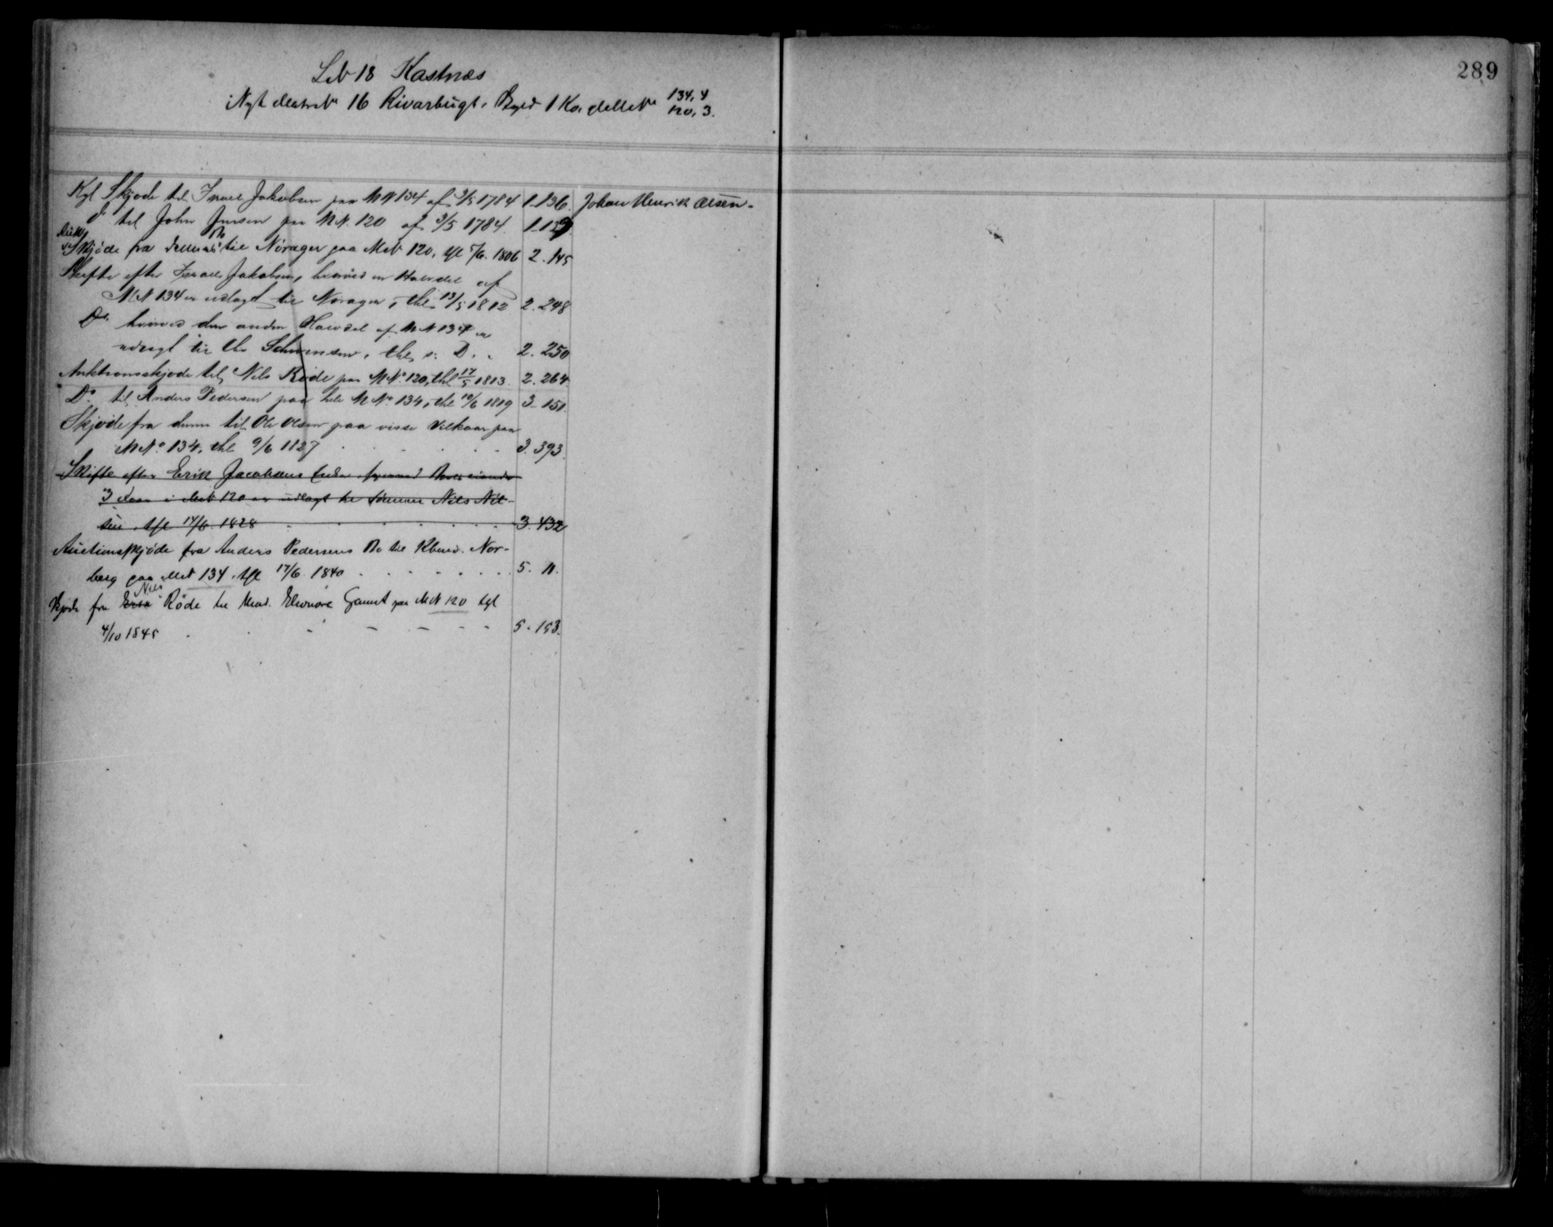 289
Lb 18 Kastnæs
Nyt Matr № 16 Rivarbugt. Skyld 1 Ko. gamle № 134, 4
120, 3.
Kgl Skjøde til Israel Jakobsen paa M N 134 af 3/5 1784 1. 136 Johan Henrik Olsen.
do til John Jensen paa M N. 120 af 3/5 1784. 1.139
Skjøde fra til Norager paa Mat 120, tgl 5/6. 1806 2. 145
Skifte efter Israel Jakobsen, hvorved en Halvdel af
M N 134 er udlagt til Norager, thl. 13/5 1812 2. 248
Do hvorved den anden Halvdel af M N 134 er
udlagt til Chr. thl. s. D. . 2. 250
Auktionsskjøde til Nils Røde paa M No 120, thl 17/5 1813. 2. 264
Do. til Anders Pedersen paa hele M No 134, thl 10/6 1819 3. 151
Skjøde fra denne til Ole Olsen paa visse Vilkaar paa
M No. 134, thl 9/6 1827 . . . . . . 3. 393
Skifte efter Erik Jacobsens Enke hvorved
3 i Mat 120 er udlagt til Sønnen Nils Nil-
sen, tgl 14/6. 1828 . . . . . . 3. 432
Auctionsskjøde fra Anders Pedersens Bo til Kbmd. Nor-
berg paa Mat 134, tgl 17/6 1840 . . . . . . . 5. 11.
Skjøde fra Nils Røde til Mad. Eleonore Gamst paa M N 120 tgl
4/10 1845 . . - - - - - 5. 153.